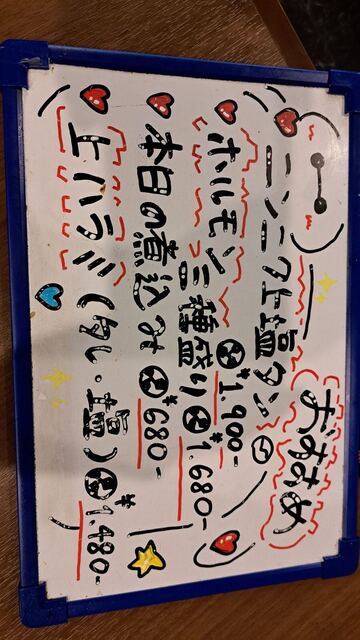 おすすめ
ニンニク上塩タン
¥1.900-
ホルモン三種盛り ¥1.680-
本日の煮込み ¥680-
上ハラミ(タレ・塩) ¥1.480-